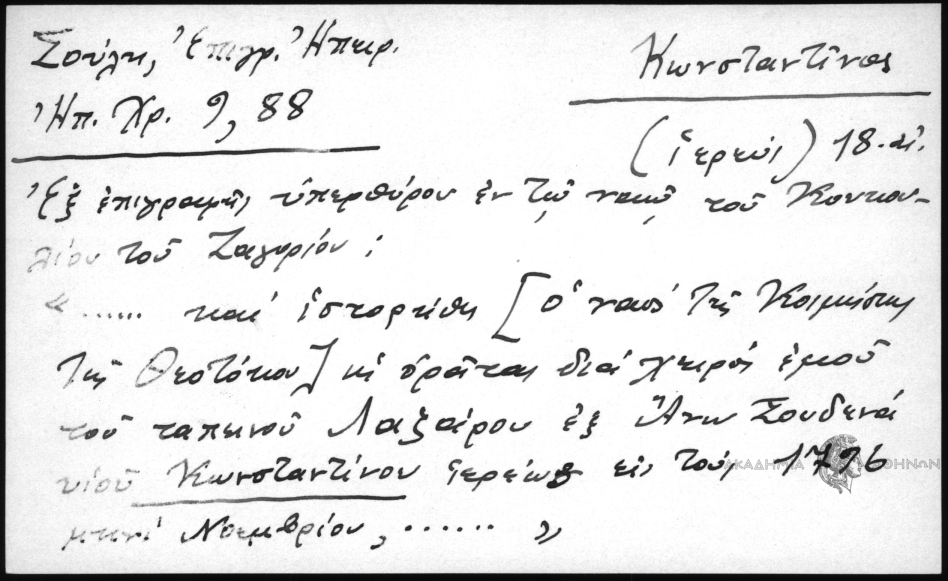 Σούλη, Ἐπιγρ. Ἠπειρ.
Ἠπ. Χρ. 9, 88
Κωνσταντῖνος
(ἱερεύς) 18. αἰ.
Ἐξ ἐπιγραφῆς ὑπερθύρου ἐν τῷ ναῷ τοῦ Κουκου-
λίου τοῦ Ζαγορίου:
"...... καὶ ἱστορήθη [ὁ ναὸς τῆς Κοιμήσεως
τῆς Θεοτόκου] κὲ ὁρᾶται διὰ χειρὸς ἐμοῦ
τοῦ ταπεινοῦ Λαζάρου ἐξ Ἄνω Σουδενά
υἱοῦ Κωνσταντίνου ἱερέως εἰς τοὺς 1796
μηνὶ Νοεμβρίου, ...... "
ΑΚΑΔΗΜΙΑ ΑΘΗΝΩΝ